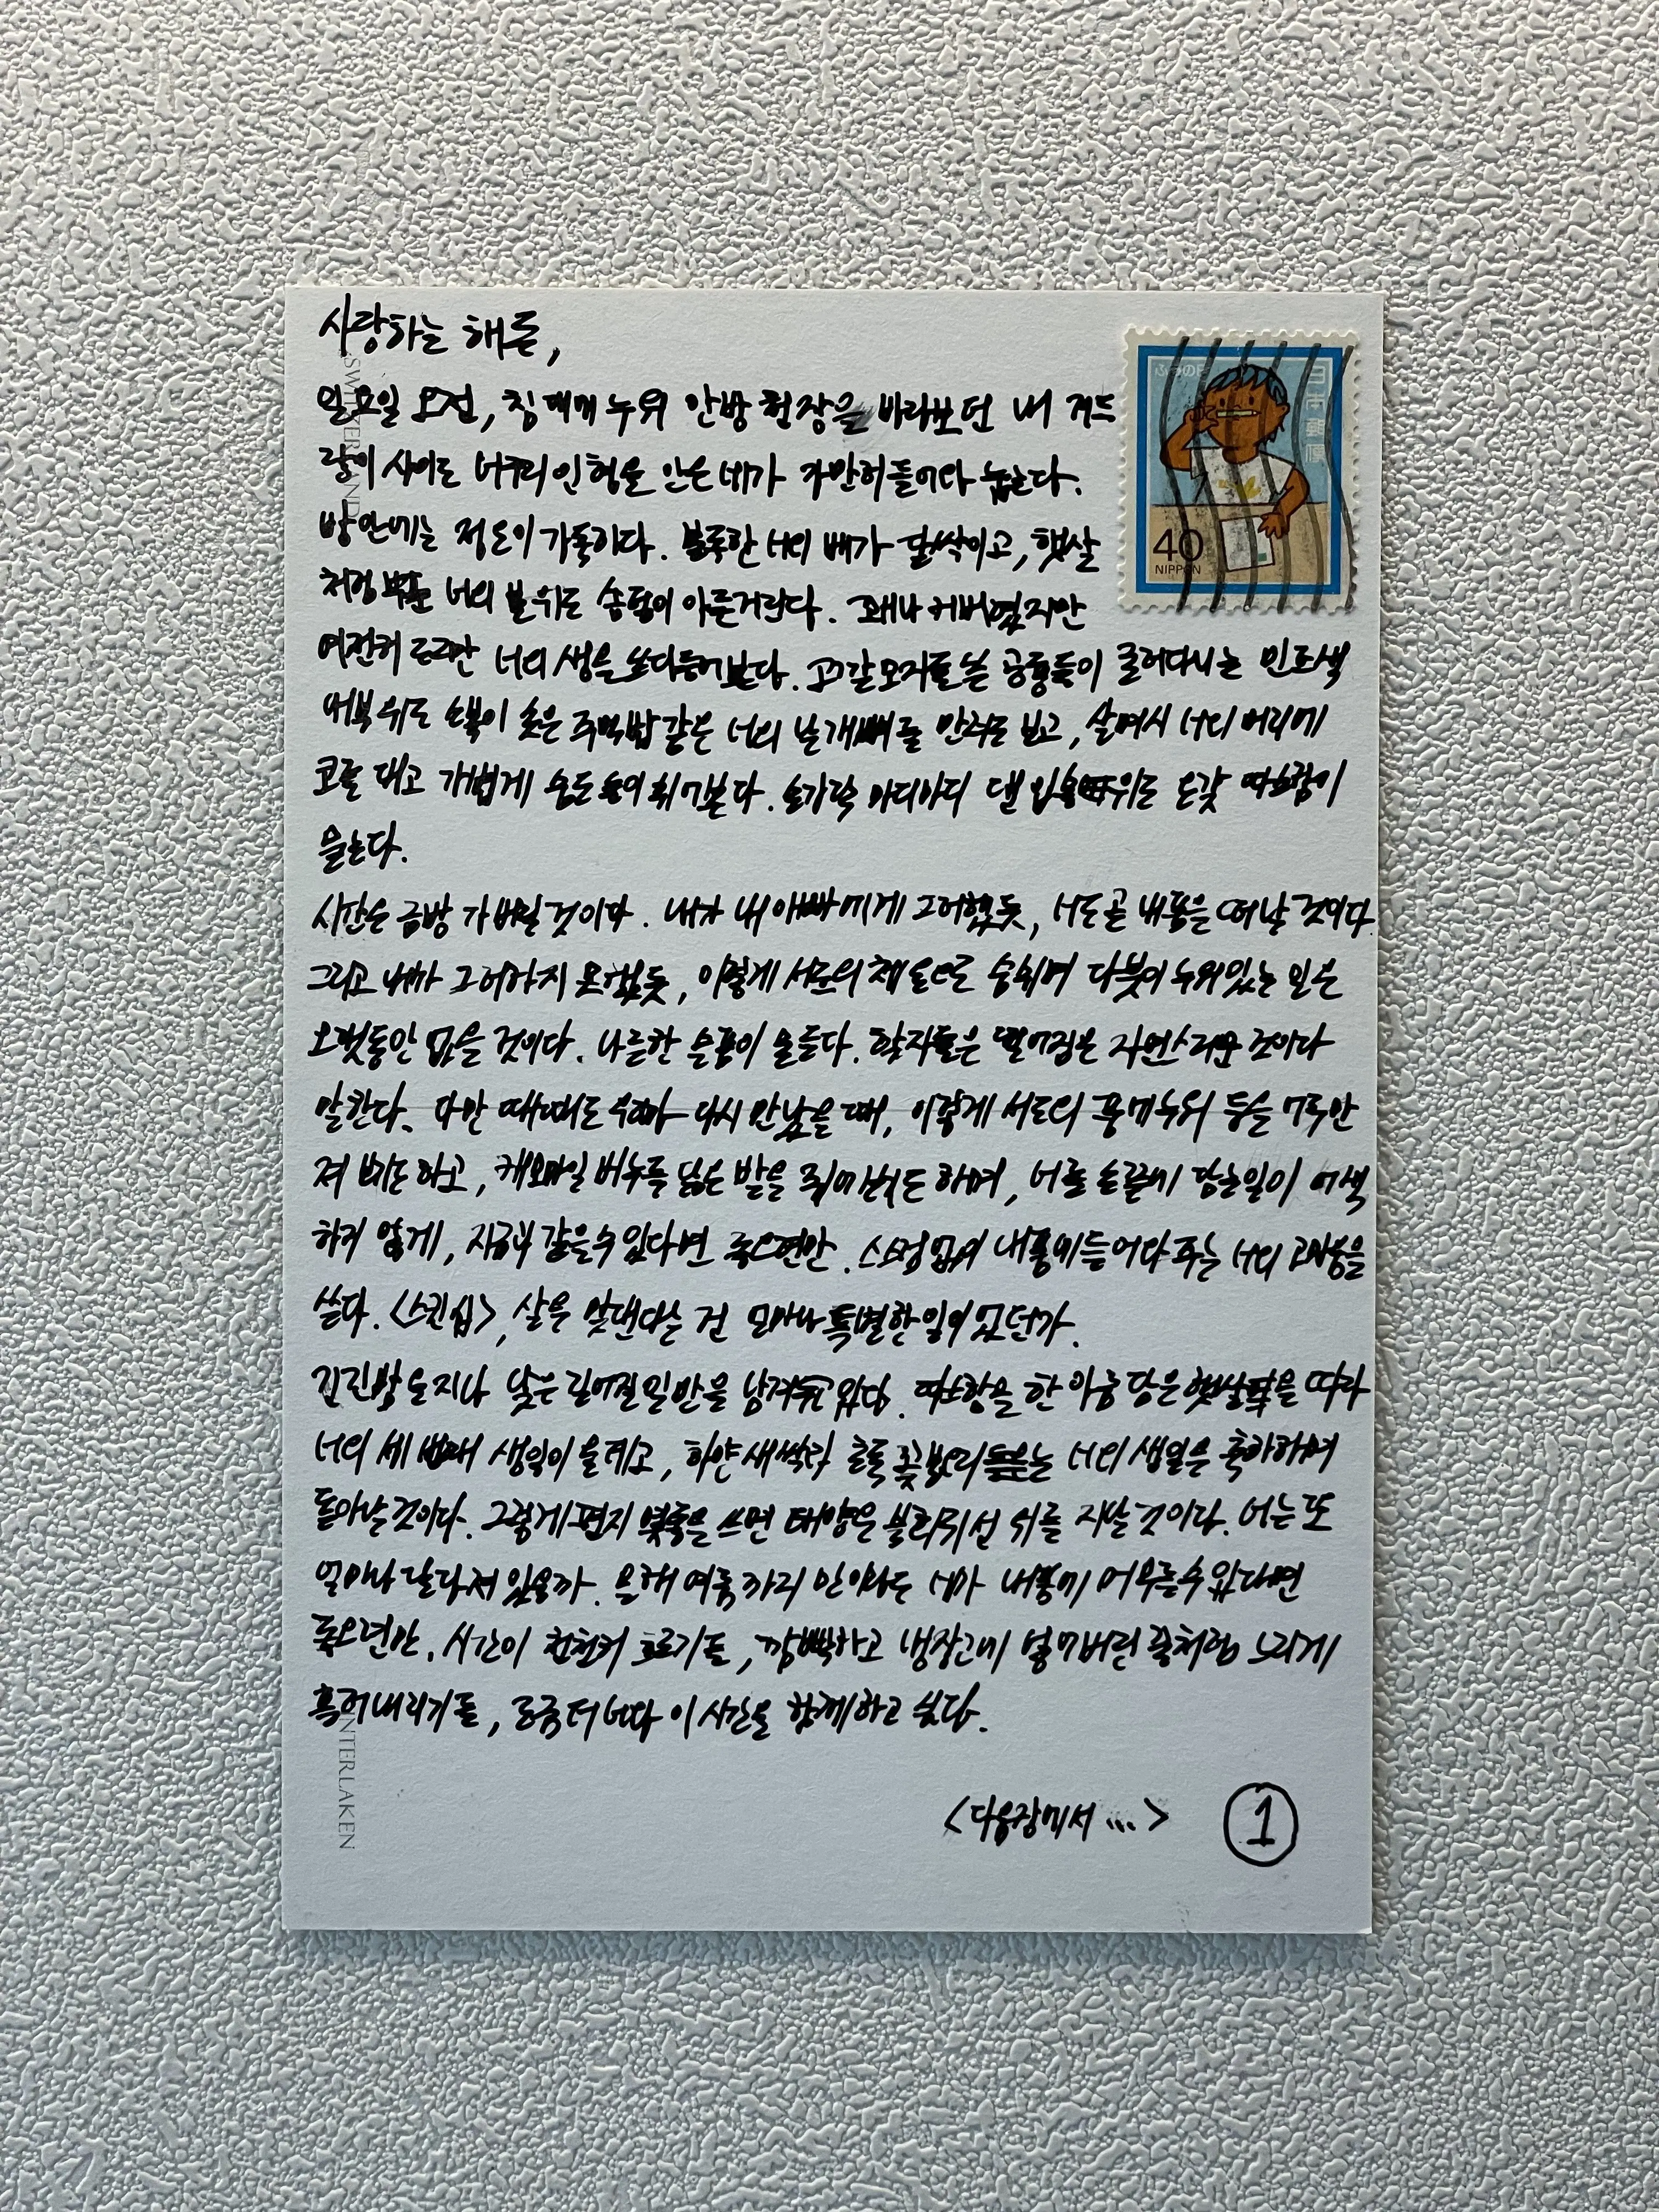 사랑하는 해든,
일요일 오전, 침대에 누워 안방 천장을 바라보던 내 겨드
랑이 사이로 너구리인형을 안은 네가 가만히 들어와 눕는다.
방 안에는 정온이 가득하다. 볼록한 너의 배가 달싹이고, 햇살
처럼 너의 볼 위로 솜털이 아른거린다. 꽤나 커버렸지만
여전히 조그만 너의 생을 쓰다듬어본다. 고깔모자를 쓴 공룡들이 굴러다니는 민트색
내복 위로 소복이 솟은 주먹밥 같은 너의 날개뼈를 만져도 보고, 살며시 너의 머리에
코를 대고 가볍게 숨도 들이쉬어본다. 손가락 마디마디 댄 입술 위로 온갖 따스함이
물든다.
시간은 금방 가버릴 것이다. 내가 내 아빠에게 그러했듯, 너도 곧 내 품을 떠날 것이다.
그리고 내가 그러하지 못했듯, 이렇게 서로의 체온으로 숨쉬며 다붓이 누워있는 일은
오랫동안 없을 것이다. 나른한 슬픔이 움튼다. 학자들은 멀어짐은 자연스러운 것이다
말한다. 다만 때때로 우리가 다시 만났을 때, 이렇게 서로의 품에 누워 등을 어루만
져 보기도 하고, 캐모마일 비누를 닮은 발을 쥐어보기도 하며, 너를 손끝에 담는 일이 어색
하지 않게, 지금과 같을 수 있다면 좋으련만. 스스럼없이 내 품에 들어와 주는 너의 고마움을
쓴다. <스킨십>, 살을 맞댄다는 건 얼마나 특별한 일이었던가.
긴긴밤을 지나 낮은 길어질 일만을 남겨두고 있다. 따스함을 한 아름 담은 햇살을 따라
너의 세 번째 생일이 올 테고, 하얀 새싹과 초록 꽃봉오리들은 너의 생일을 축하하며
돋아날 것이다. 그렇게 편지 몇 줄을 쓰면 태양은 불라위선 위를 지날 것이다. 너는 또
얼마나 달라져 있을까. 올해 여름까지 만이라도 너가 내 품에 머무를 수 있다면
좋으련만. 시간이 천천히 흐르기를, 깜빡하고 냉장고에 넣어버린 꿀처럼 느리게
흘러내리기를, 조금 더 너와 이 시간을 함께하고 싶다.
<다음장에서 ...> ①
40
NIPPON
日本郵便
ふみの日
SWITZERLAND
INTERLAKEN